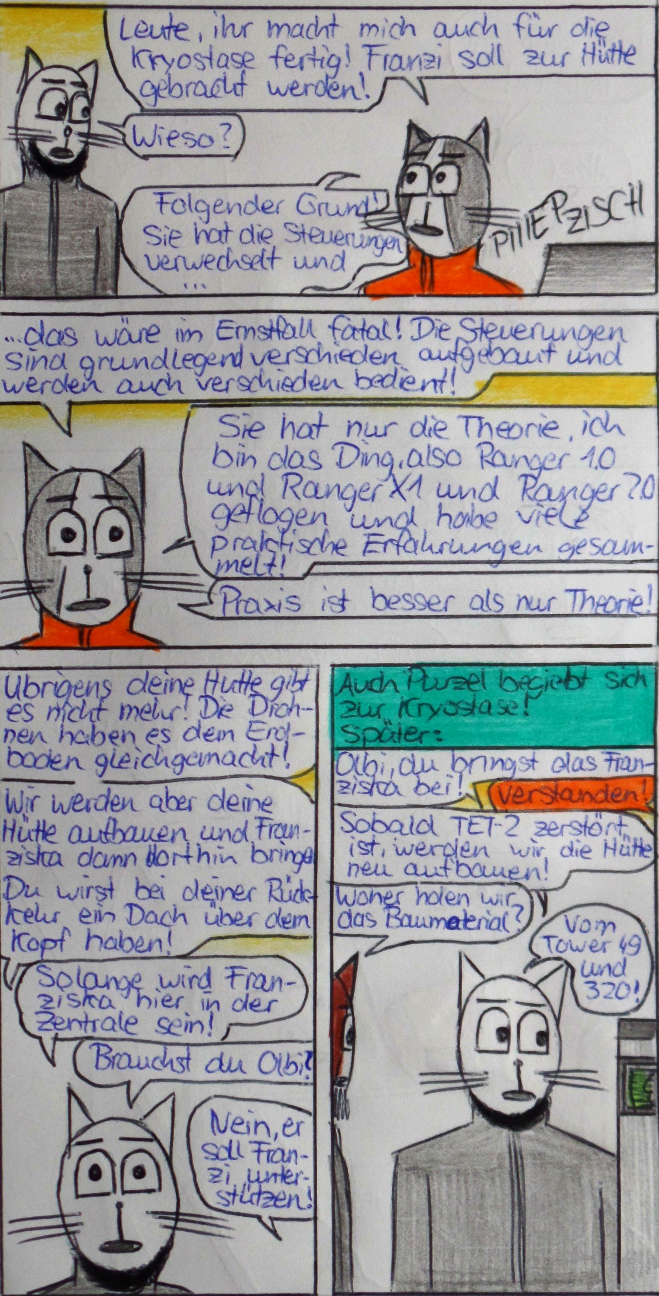 Leute, ihr macht mich auch für die
Kryostase fertig! Franzi soll zur Hütte
gebracht werden!
Wieso?
Folgender Grund!
Sie hat die Steuerungen
verwechselt und
...
PIIIEP ZISCH
...das wäre im Ernstfall fatal! Die Steuerungen
sind grundlegend verschieden aufgebaut und
werden auch verschieden bedient!
Sie hat nur die Theorie, ich
bin das Ding, also Ranger 1.0
und Ranger X1 und Ranger 2.0
geflogen und habe viele
praktische Erfahrungen gesam-
melt!
Praxis ist besser als nur Theorie!
Übrigens deine Hütte gibt
es nicht mehr! Die Droh-
nen haben es dem Erd-
boden gleichgemacht!
Wir werden aber deine
Hütte aufbauen und Fran-
ziska dann dorthin bringen
Du wirst bei deiner Rück-
kehr ein Dach über dem
Kopf haben!
Solange wird Fran-
ziska hier in der
Zentrale sein!
Brauchst du Olbi?
Nein, er
soll Fran-
zi unter-
stützen!
Auch Purzel begiebt sich
zur Kryostase!
Später:
Olbi, du bringst das Fran-
ziska bei!
Verstanden!
Sobald TET-2 zerstört
ist, werden wir die Hütte
neu aufbauen!
Woher holen wir
das Baumaterial?
Vom
Tower 49
und
320!